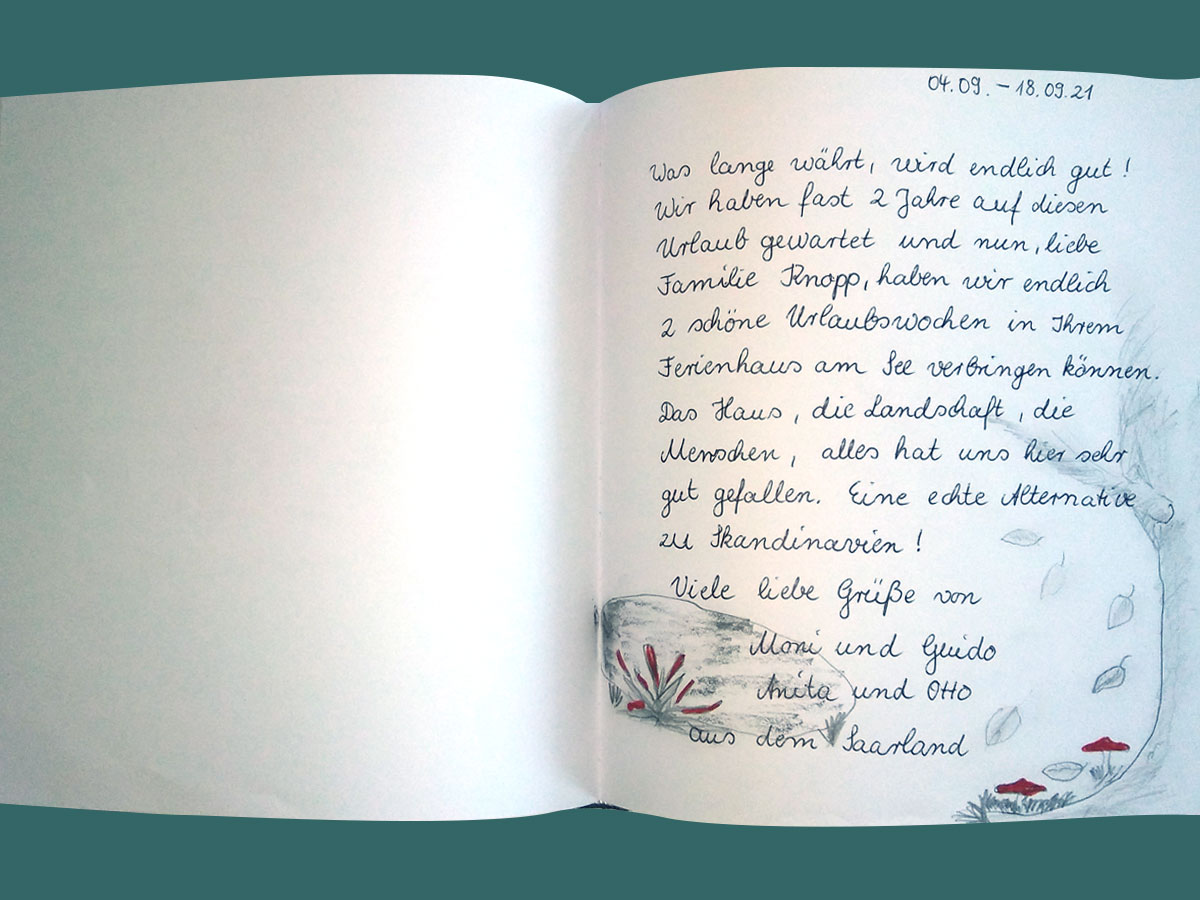 04.09. – 18.09.21
Was lange währt, wird endlich gut!
Wir haben fast 2 Jahre auf diesen
Urlaub gewartet und nun, liebe
Familie Knopp, haben wir endlich
2 schöne Urlaubswochen in Ihrem
Ferienhaus am See verbringen können.
Das Haus, die Landschaft, die
Menschen, alles hat uns hier sehr
gut gefallen. Eine echte Alternative
zu Skandinavien!
Viele liebe Grüße von
Moni und Guido
Anita und Otto
aus dem Saarland